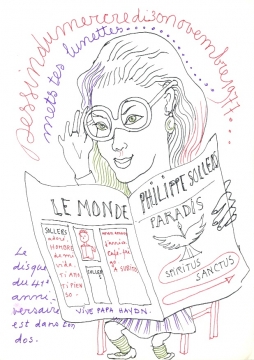 Dessin du mercredi 30 novembre 1977....
mets tes lunettes......
LE MONDE
PHILIPPE SOLLERS
PARADIS
SPIRITUS
SANCTUS
SOLLERS
adoré,
HOMBRE
de mi
vida
SOLLERS
j'arrive
A SUBITO
VIVE PAPA HAYDN.
Le
disque
du 41e
anni-
versaire
est dans ton
dos.